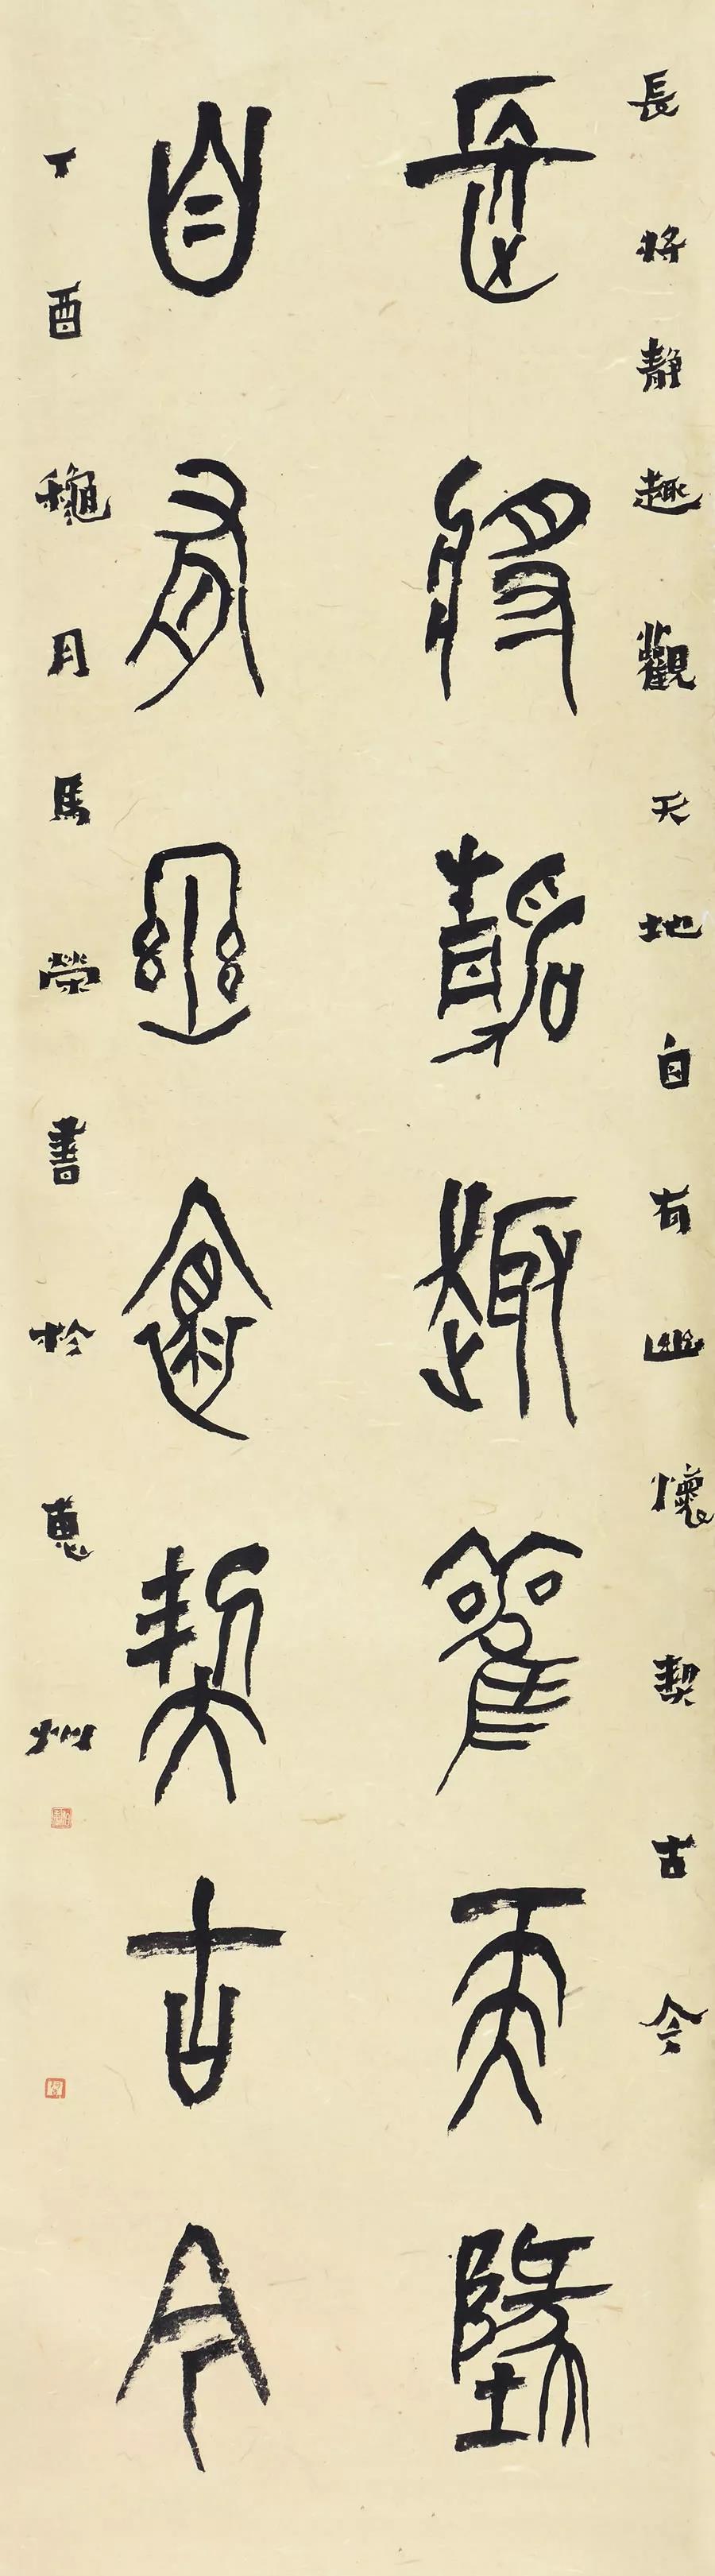 長將靜趣觀天地自有幽懷契古今
長將靜趣觀天地
自有幽懷契古今
丁酉龝月馬榮書於惠州